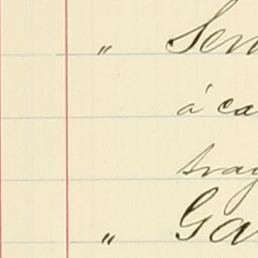 " Sen
á ca
trag
" Ga